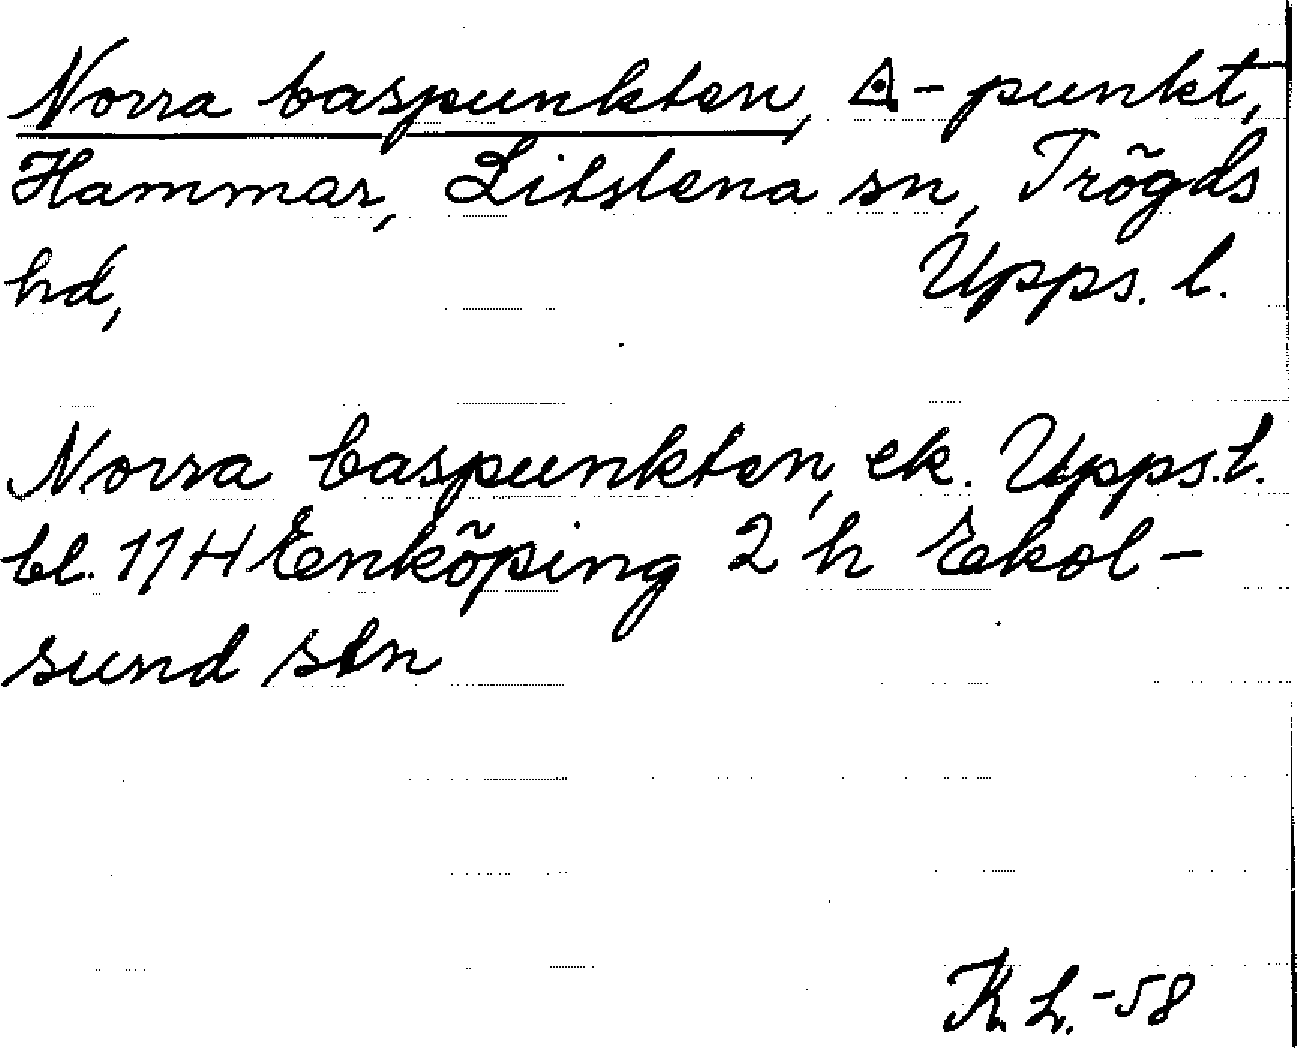 Norra baspunkten, △-punkt,
Hammar, Litslena sn, Trögds
hd, Upps. l.
Norra baspunkten, ek. Upps. l.
bl. 11H Enköping 2 h Ekol-
sund stn
K. L. -58